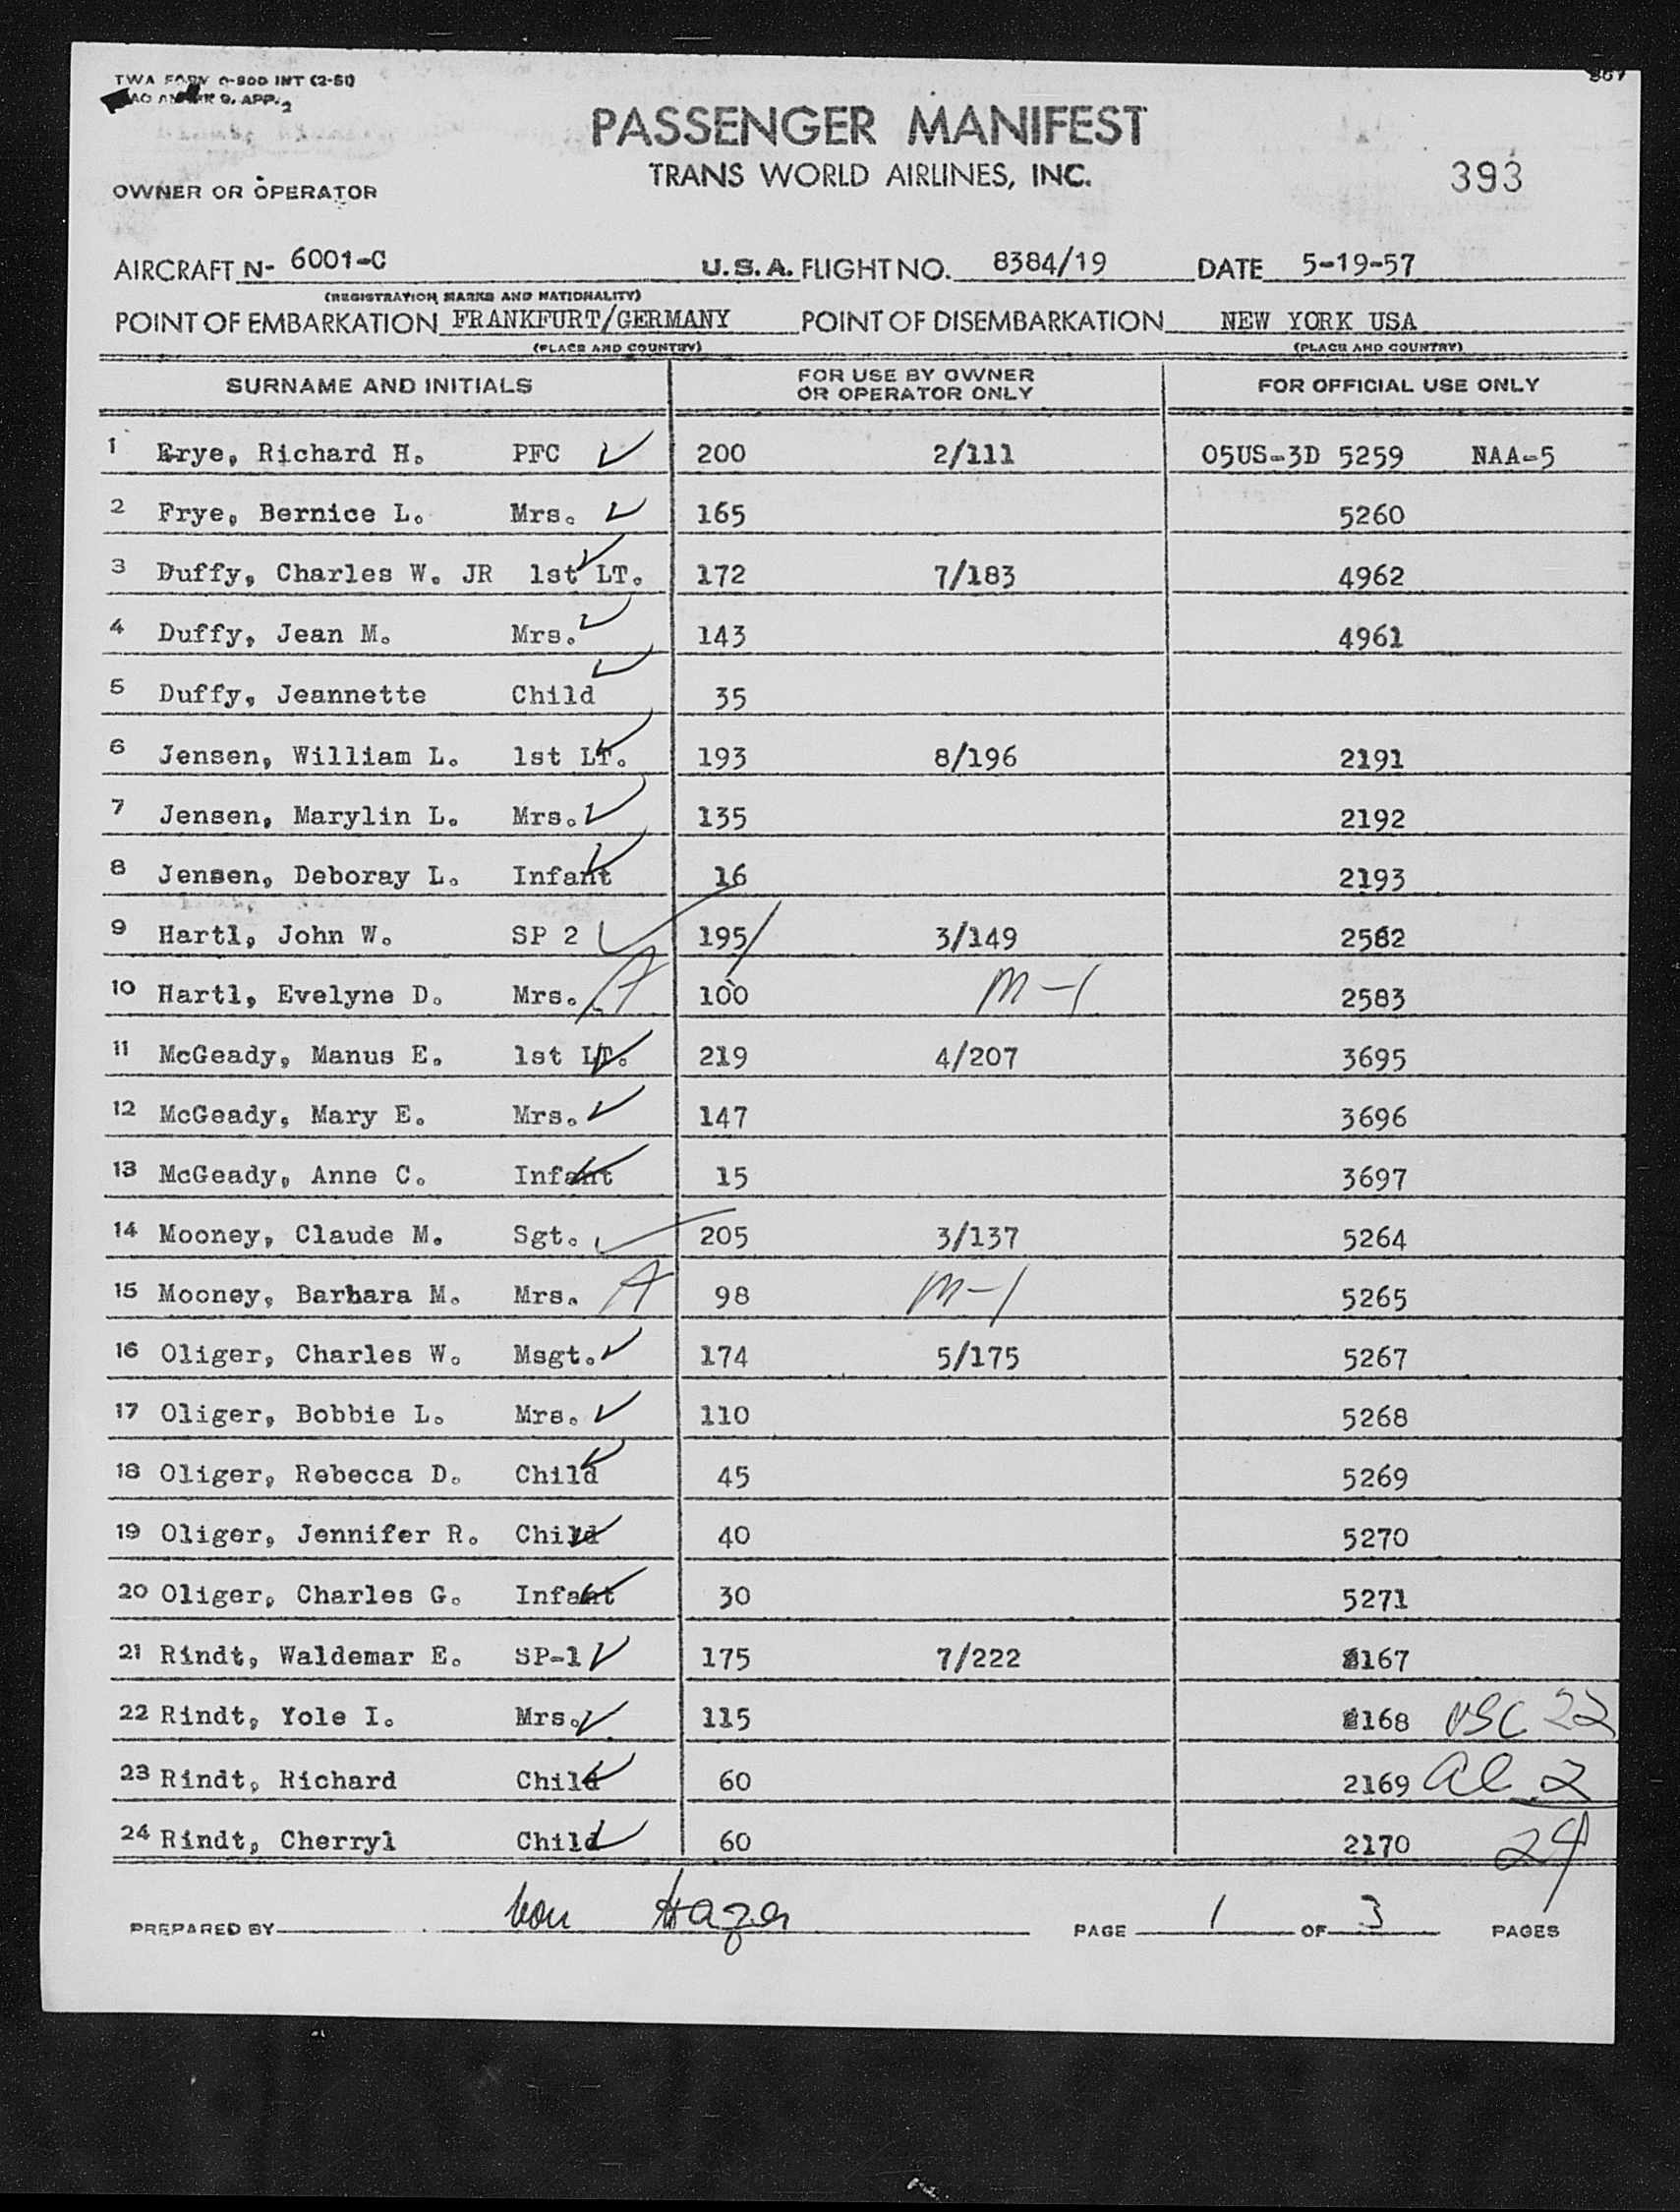 TWA FORM O-800 INT (2-51)
867
APP. 2
PASSENGER MANIFEST
TRANS WORLD AIRLINES, INC.
393
OWNER OR OPERATOR
AIRCRAFT N- 6001-C U.S.A. FLIGHT NO. 8384/19 DATE 5-19-57
(REGISTRATION MARKS AND NATIONALITY)
POINT OF EMBARKATION FRANKFURT/GERMANY POINT OF DISEMBARKATION NEW YORK USA
(PLACE AND COUNTRY) (PLACE AND COUNTRY)
SURNAME AND INITIALS FOR USE BY OWNER OR OPERATOR ONLY FOR OFFICIAL USE ONLY
1 Frye, Richard H. PFC 200 2/111 05US-3D 5259 NAA-5
2 Frye, Bernice L. Mrs. 165 5260
3 Duffy, Charles W. JR 1st LT. 172 7/183 4962
4 Duffy, Jean M. Mrs. 143 4961
5 Duffy, Jeannette Child 35
6 Jensen, William L. 1st LT. 193 8/196 2191
7 Jensen, Marylin L. Mrs. 135 2192
8 Jensen, Deboray L. Infant 16 2193
9 Hartl, John W. SP 2 195 3/149 2582
10 Hartl, Evelyne D. Mrs. A 100 M-1 2583
11 McGeady, Manus E. 1st LT. 219 4/207 3695
12 McGeady, Mary E. Mrs. 147 3696
13 McGeady, Anne C. Infant 15 3697
14 Mooney, Claude M. Sgt. 205 3/137 5264
15 Mooney, Barbara M. Mrs. A 98 M-1 5265
16 Oliger, Charles W. Msgt. 174 5/175 5267
17 Oliger, Bobbie L. Mrs. 110 5268
18 Oliger, Rebecca D. Child 45 5269
19 Oliger, Jennifer R. Child 40 5270
20 Oliger, Charles G. Infant 30 5271
21 Rindt, Waldemar E. SP-1 175 7/222 2167
22 Rindt, Yole I. Mrs. 115 2168 USC 22
23 Rindt, Richard Child 60 2169 al 2
24 Rindt, Cherryl Child 60 2170 24
PREPARED BY von PAGE 1 OF 3 PAGES